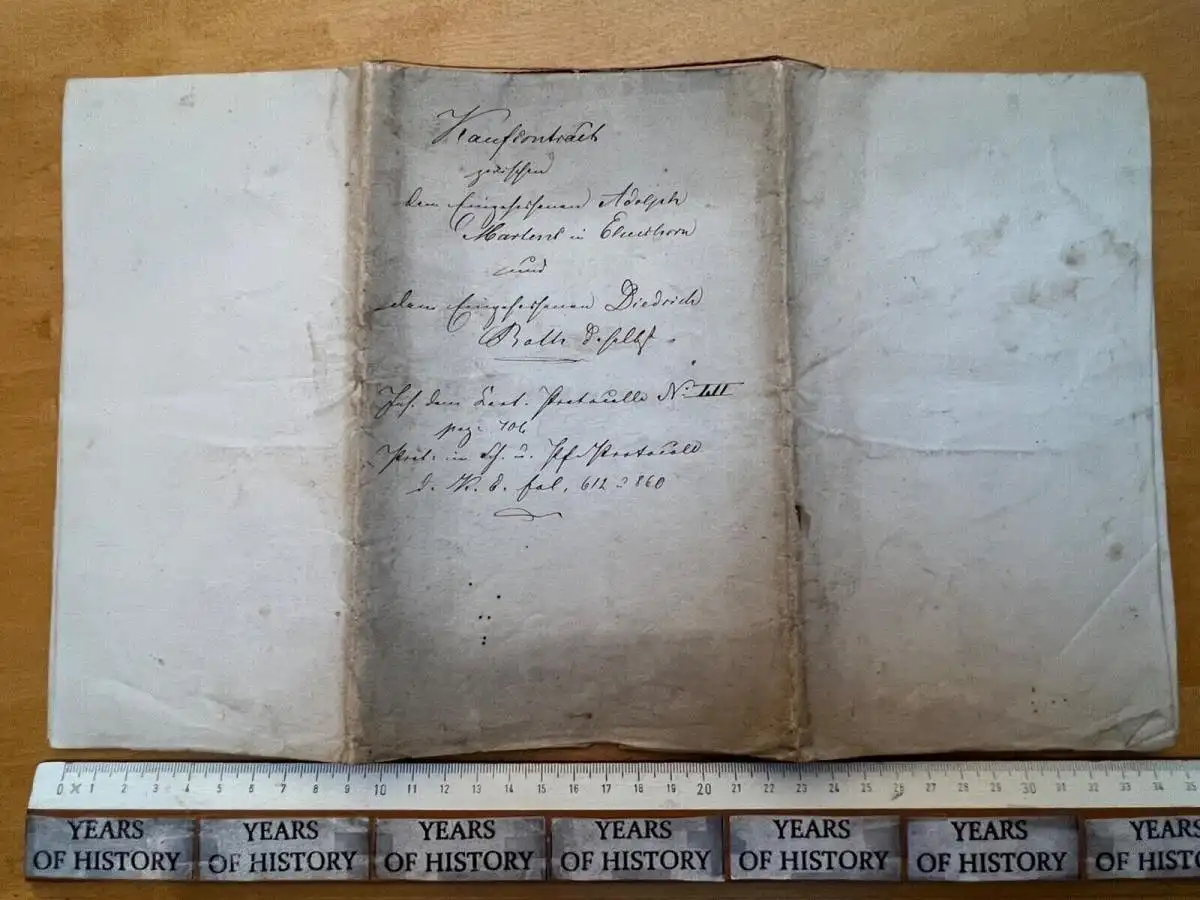 Kaufcontract
zwischen
dem Eingesessenen Adolph
Martens in Elmshorn
und
dem Eingesessenen Diedrich
Daselbst
dem Cont. Protocolle No. III
pag. 106
Prot. im Sch. u. Pf. Protocoll
fol. 612
0 1 2 3 4 5 6 7 8 9 10 11 12 13 14 15 16 17 18 19 20 21 22 23 24 25 26 27 28 29 30 31 32 33 34 35
YEARS OF HISTORY YEARS OF HISTORY YEARS OF HISTORY YEARS OF HISTORY YEARS OF HISTORY YEARS OF HISTORY YEARS